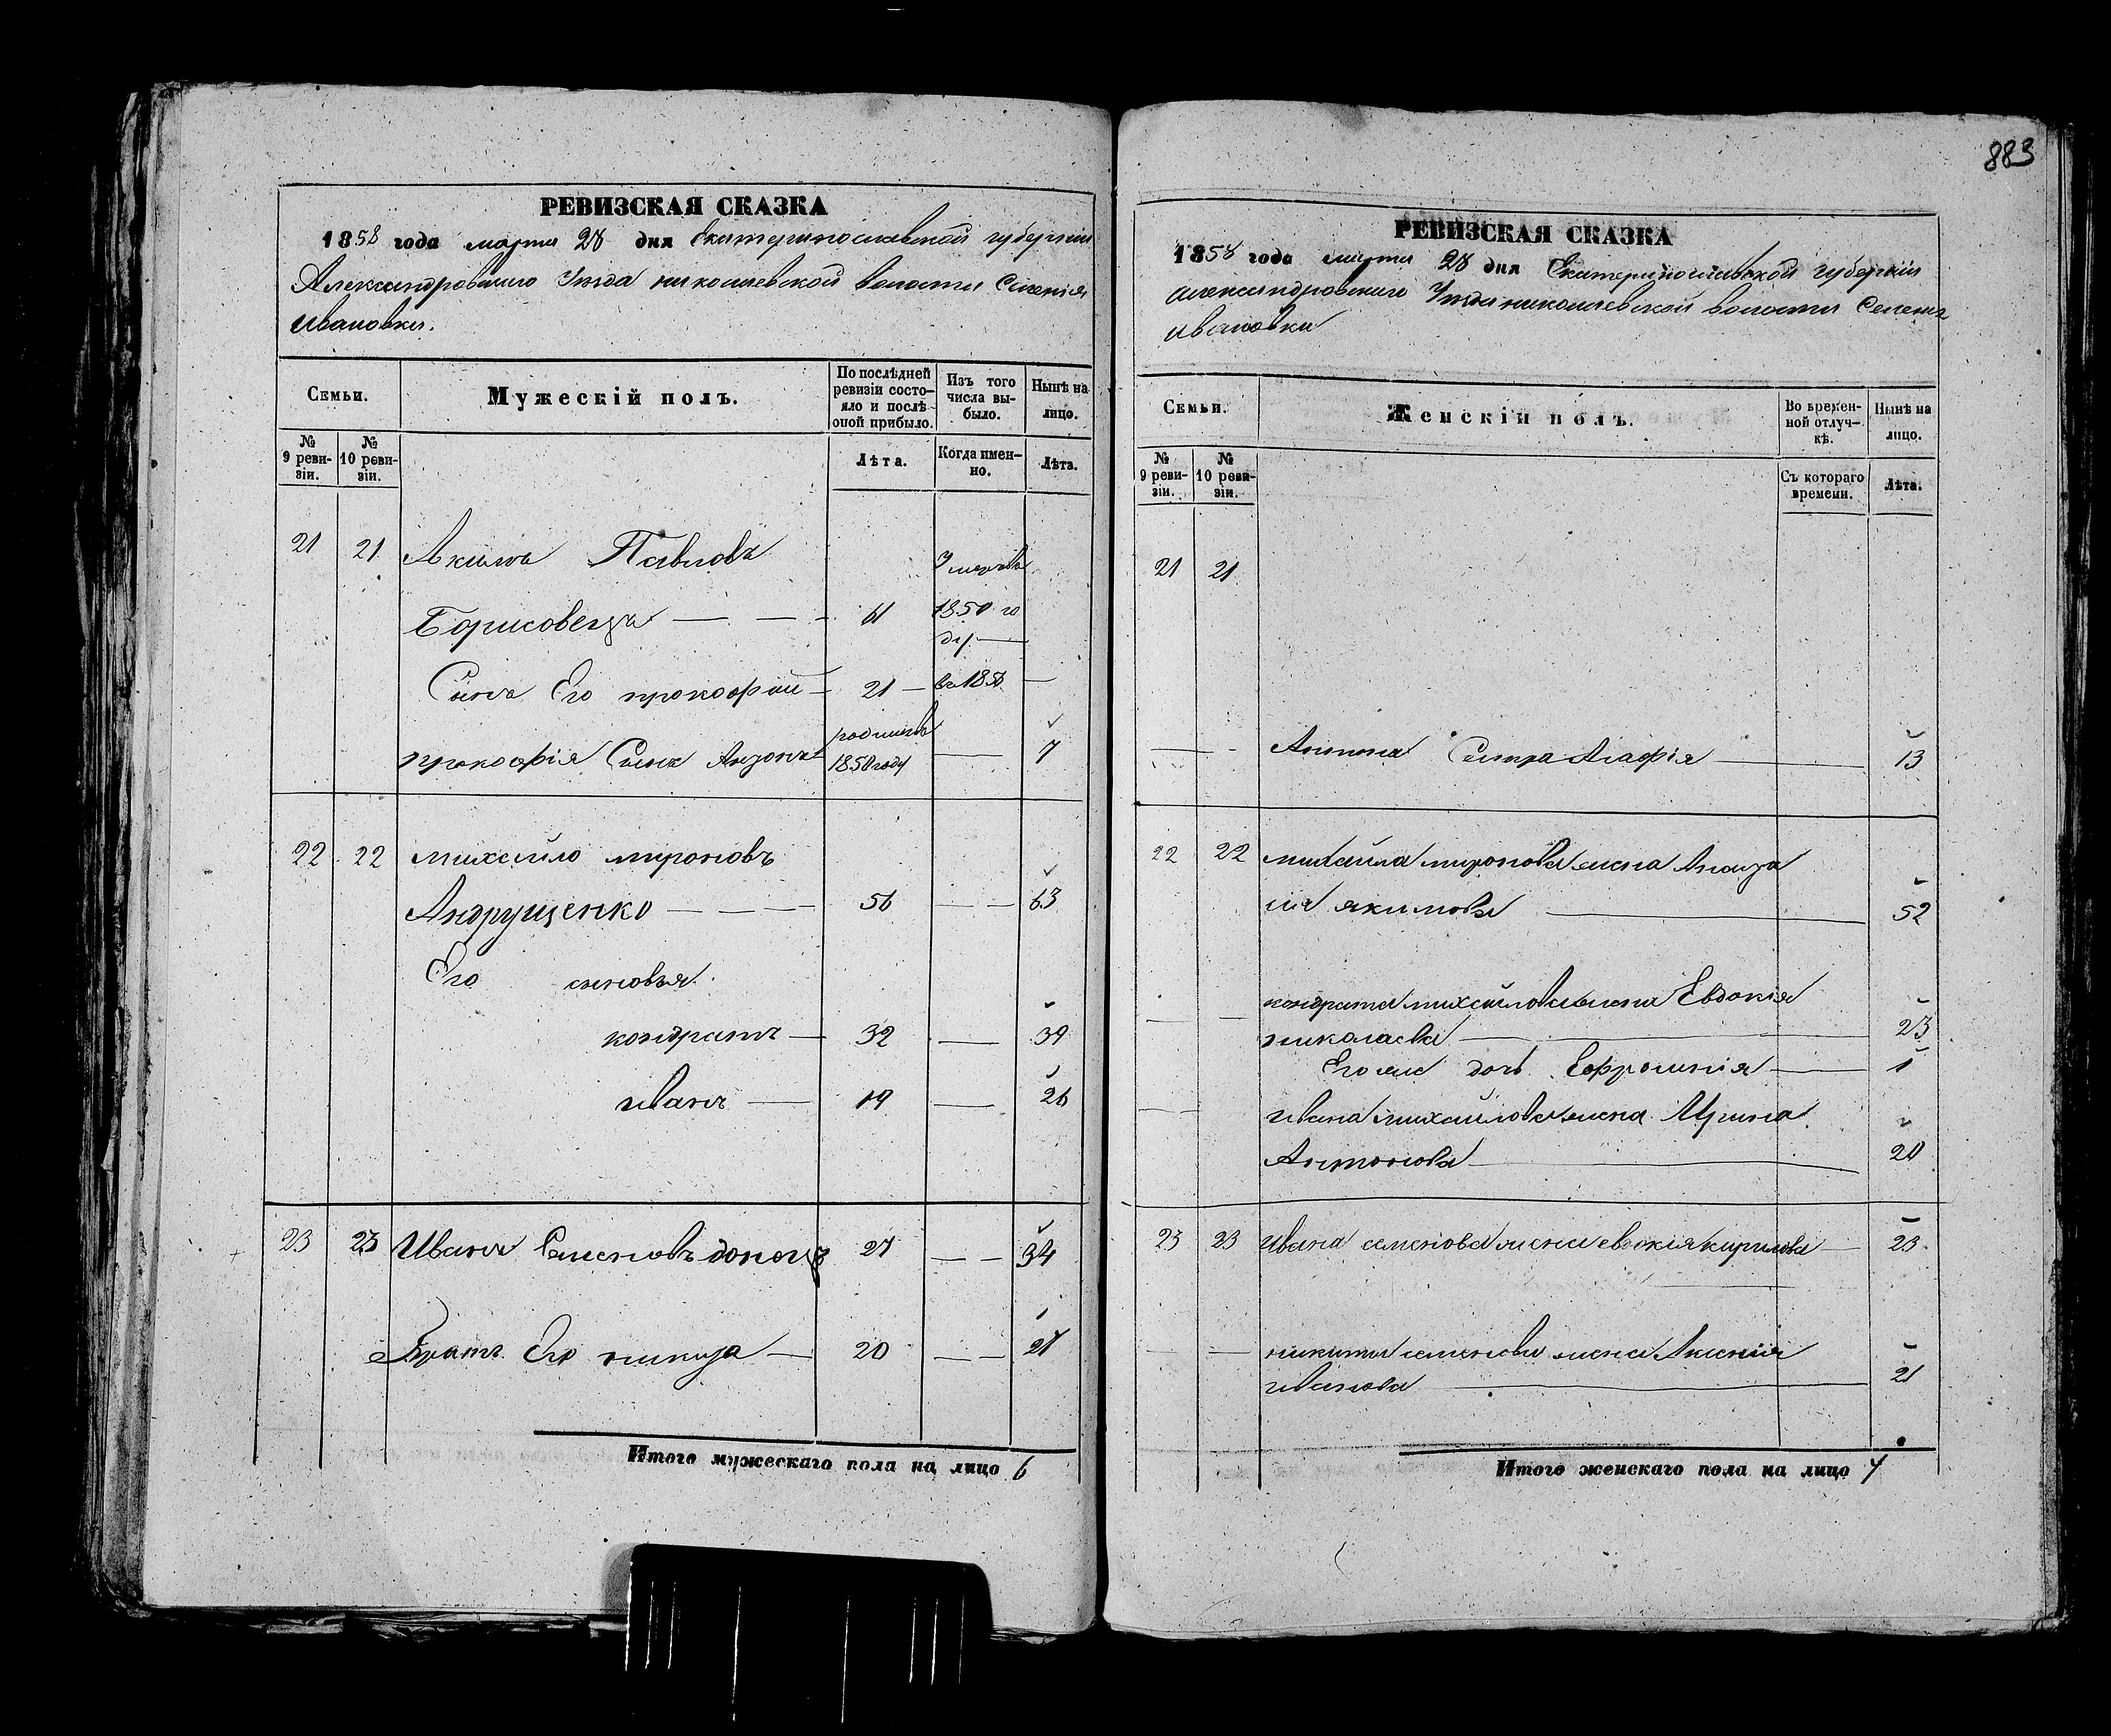 РЕВИЗСКАЯ СКАЗКА
1858 года марта 28 дня Екатеринославской губернии
Александровского Уезда николаевской волости Селенія
Ивановки.
Семьи.
Мужескій полъ.
По послѣдней ревизіи состояло и послѣ оной прибыло.
Изъ того числа выбыло.
Нынѣ на лицо.
№ 9 ревизіи.
№ 10 ревизіи.
Лѣта.
Когда именно.
Лѣта.
21 21 Акимъ Павловъ Умеръ въ
Борисовецъ 61 1850 го
ду
Сынъ Его прокофій 21 въ 1856
прокофія Сынъ родился въ 1850 году 7
22 22 михайло мироновъ
Андрущенко 56 63
Его сыновья.
кондратъ 32 39
иванъ 19 26
23 23 Иванъ Семеновъ донецъ 27 34
Братъ Его никита 20 27
Итого мужескаго пола на лицо 6
883
РЕВИЗСКАЯ СКАЗКА
1858 года марта 28 дня Екатеринославской губерніи
александровского Уезда николаевской волости Селенія
ивановки
Семьи.
Женскій полъ.
Во временной отлучкѣ.
Нынѣ на лицо.
№ 9 ревизіи.
№ 10 ревизіи.
Съ котораго времени.
Лѣта.
21 21
Сестра Агафія 13
22 22 михайла миронова жена
якимова 52
кондрата михайлова жена Евдокія
николаева 23
Его же дочь Ефросинія 1
ивана михайлова жена Ирина
Антонова 20
23 23 ивана семенова жена евдокія кирилова 23
никиты семенова жена Аксенія
иванова 21
Итого женскаго пола на лицо 7